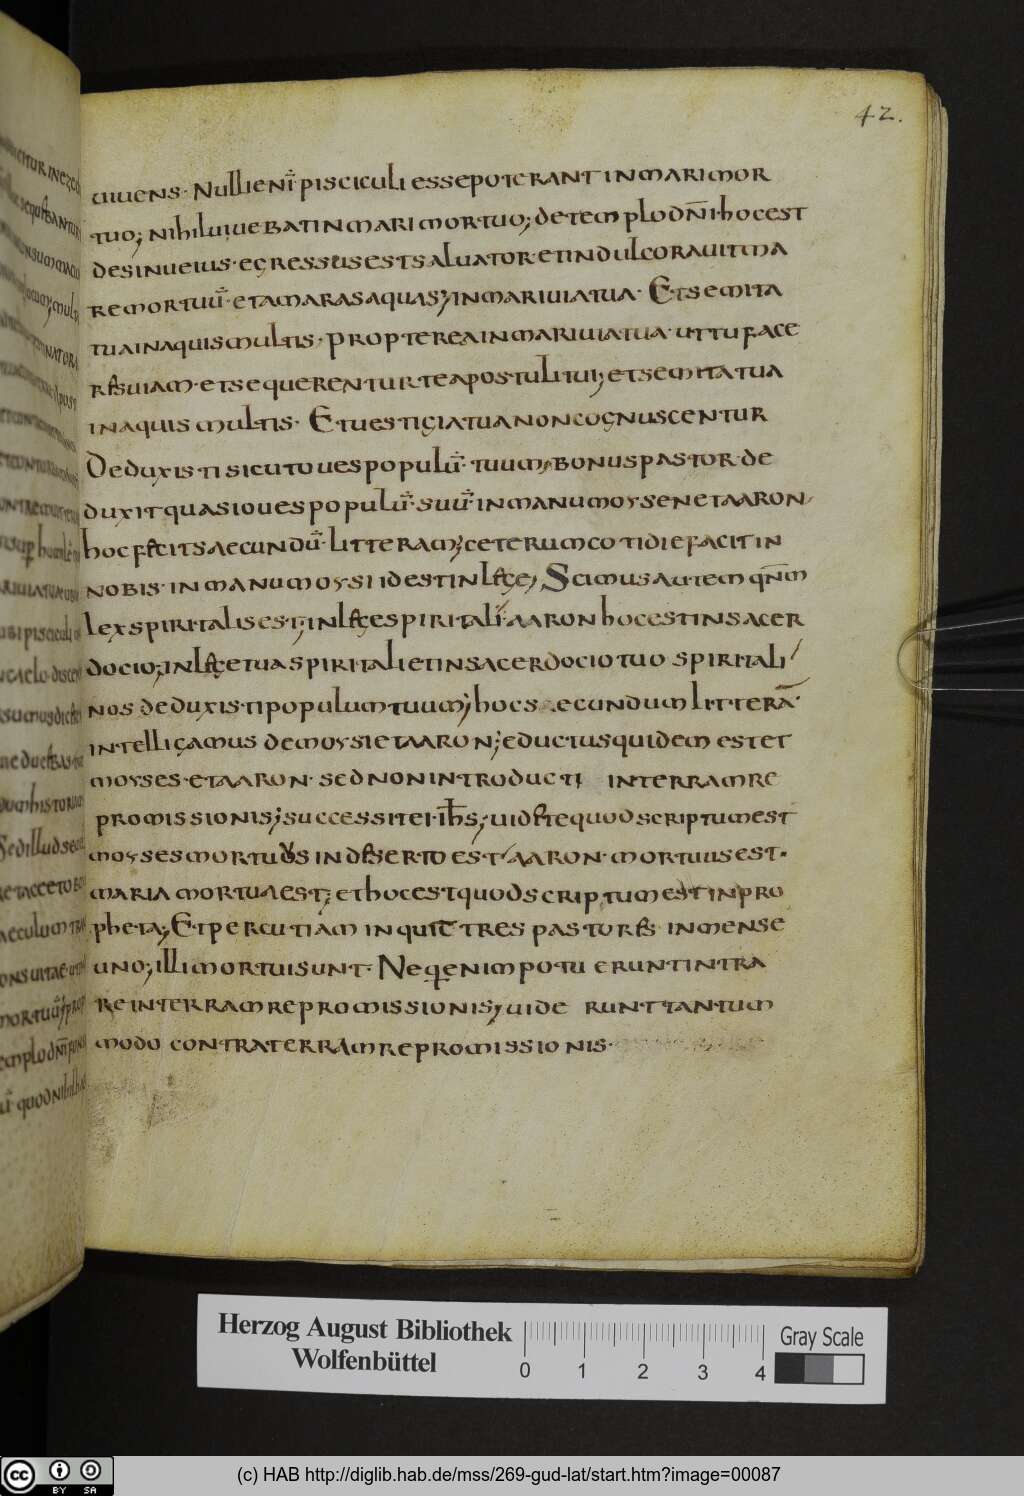 42.
uiuens· Nulli eni̅ pisciculi esse poterant in mari mor
tuo; nihil uiuebat in mari mortuo; de templo dn̅i· hoc est
de sinu eius· egressus est saluator et indulcorauit ma
re mortuu̅· et amaras aquas; in mari uia tua· Et semita
tua in aquis multis· propterea in mari uia tua· ut tu face
res uiam· et sequerentur te apostuli tui; et semita tua
in aquis multis· Et uestigia tua non cognuscentur
Deduxisti sicut oues populu̅· tuum; bonus pastor· de
duxit quasi oues populu̅· suu̅· in manu moysen et aaron
hoc fecit saecundu̅· litteram; ceterum cotidie facit in
nobis· in manu moysi id est in lege; Scimus autem qn̅m
lex spiritalis est; in lege spiritali· aaron hoc est in sacer
docio; in lege tua spiritali et in sacerdocio tuo spiritali
nos deduxisti populum tuum; hoc s ecundum littera̅
intelligamus de moysi et aaron; eductus quidem est et
moyses· et aaron· sed non introducti in terram re
promissionis; successit ei· ih̅s; uidete quod scriptum est
moyses mortuus in deserto est aaron· mortuus est·
maria mortua est; et hoc est quod scriptum est in pro
pheta; Et percutiam inquit tres pastores in mense
uno; illi mortui sunt· Neque enim potuerunt intra
re in terram repromissionis; uide runt tantum
modo contra terram repromissionis·
Herzog August Bibliothek
Wolfenbüttel
0 1 2 3 4
Gray Scale
(c) HAB http://diglib.hab.de/mss/269-gud-lat/start.htm?image=00087